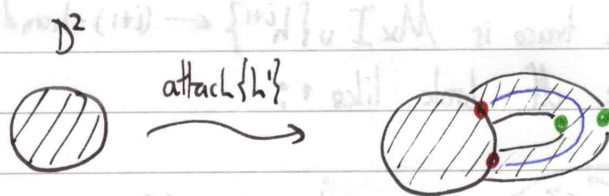 D²
attach {h¹}